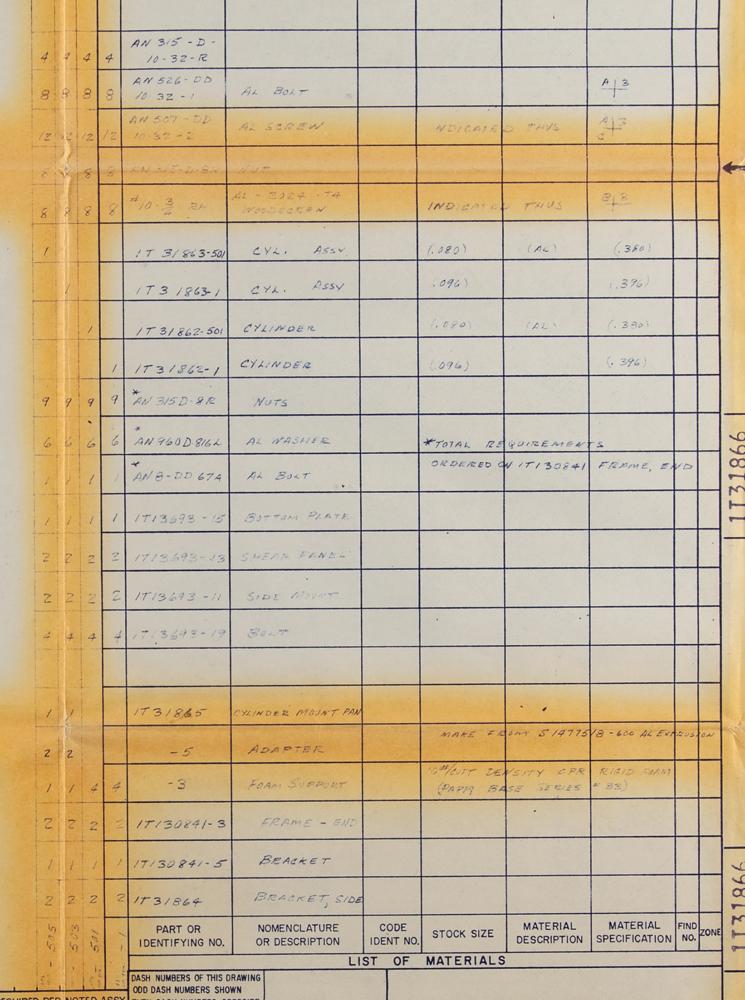 4 4 4 4 AN 315-D-
10-32-R
8 8 8 8 AN 526-DD
10-32-1 AL BOLT A 3
12 12 12 12 AN 507-DD
10-32-2 AL SCREW INDICATED THUS A 3
C
8 8 8 8 NUT
8 8 8 8 #10- RH AL-2024-T4
INDICATED THUS B 3
1 1T 31863-501 CYL. ASSY (.080) (AL) (.380)
1 1T 31863-1 CYL. ASSY (.096) (.396)
1 1T 31862-501 CYLINDER (.080) (AL) (.380)
1 1T 31862-1 CYLINDER (.096) (.396)
9 9 9 9 *AN 315D-8R NUTS
6 6 6 6 *AN960D-816L AL WASHER *TOTAL REQUIREMENTS
ORDERED ON 1T130841 FRAME, END
1 1 1 1 *AN8-DD 67A AL BOLT
1 1 1 1 1T13693-15 BOTTOM PLATE
2 2 2 2 1T13693-23 SHEAR PANEL
2 2 2 2 1T13693-11 SIDE MOUNT
4 4 4 4 1T13693-19 BOLT
1 1 1T 31865 CYLINDER MOUNT PAN
MAKE FROM S1477518-600 AL EXTRUSION
2 2 -5 ADAPTER
DENSITY CPR RIGID FOAM
1 1 4 4 -3 FOAM SUPPORT BASE SERIES #
2 2 2 2 1T130841-3 FRAME-END
1 1 1 1 1T130841-5 BRACKET
2 2 2 2 1T 31864 BRACKET, SIDE
-505 -503 -501 -1
PART OR
IDENTIFYING NO.
NOMENCLATURE
OR DESCRIPTION
CODE
IDENT NO.
STOCK SIZE
MATERIAL
DESCRIPTION
MATERIAL
SPECIFICATION
FIND
NO.
ZONE
LIST OF MATERIALS
DASH NUMBERS OF THIS DRAWING
ODD DASH NUMBERS SHOWN
REQUIRED PER NOTED ASSY
1T31866
1T31866